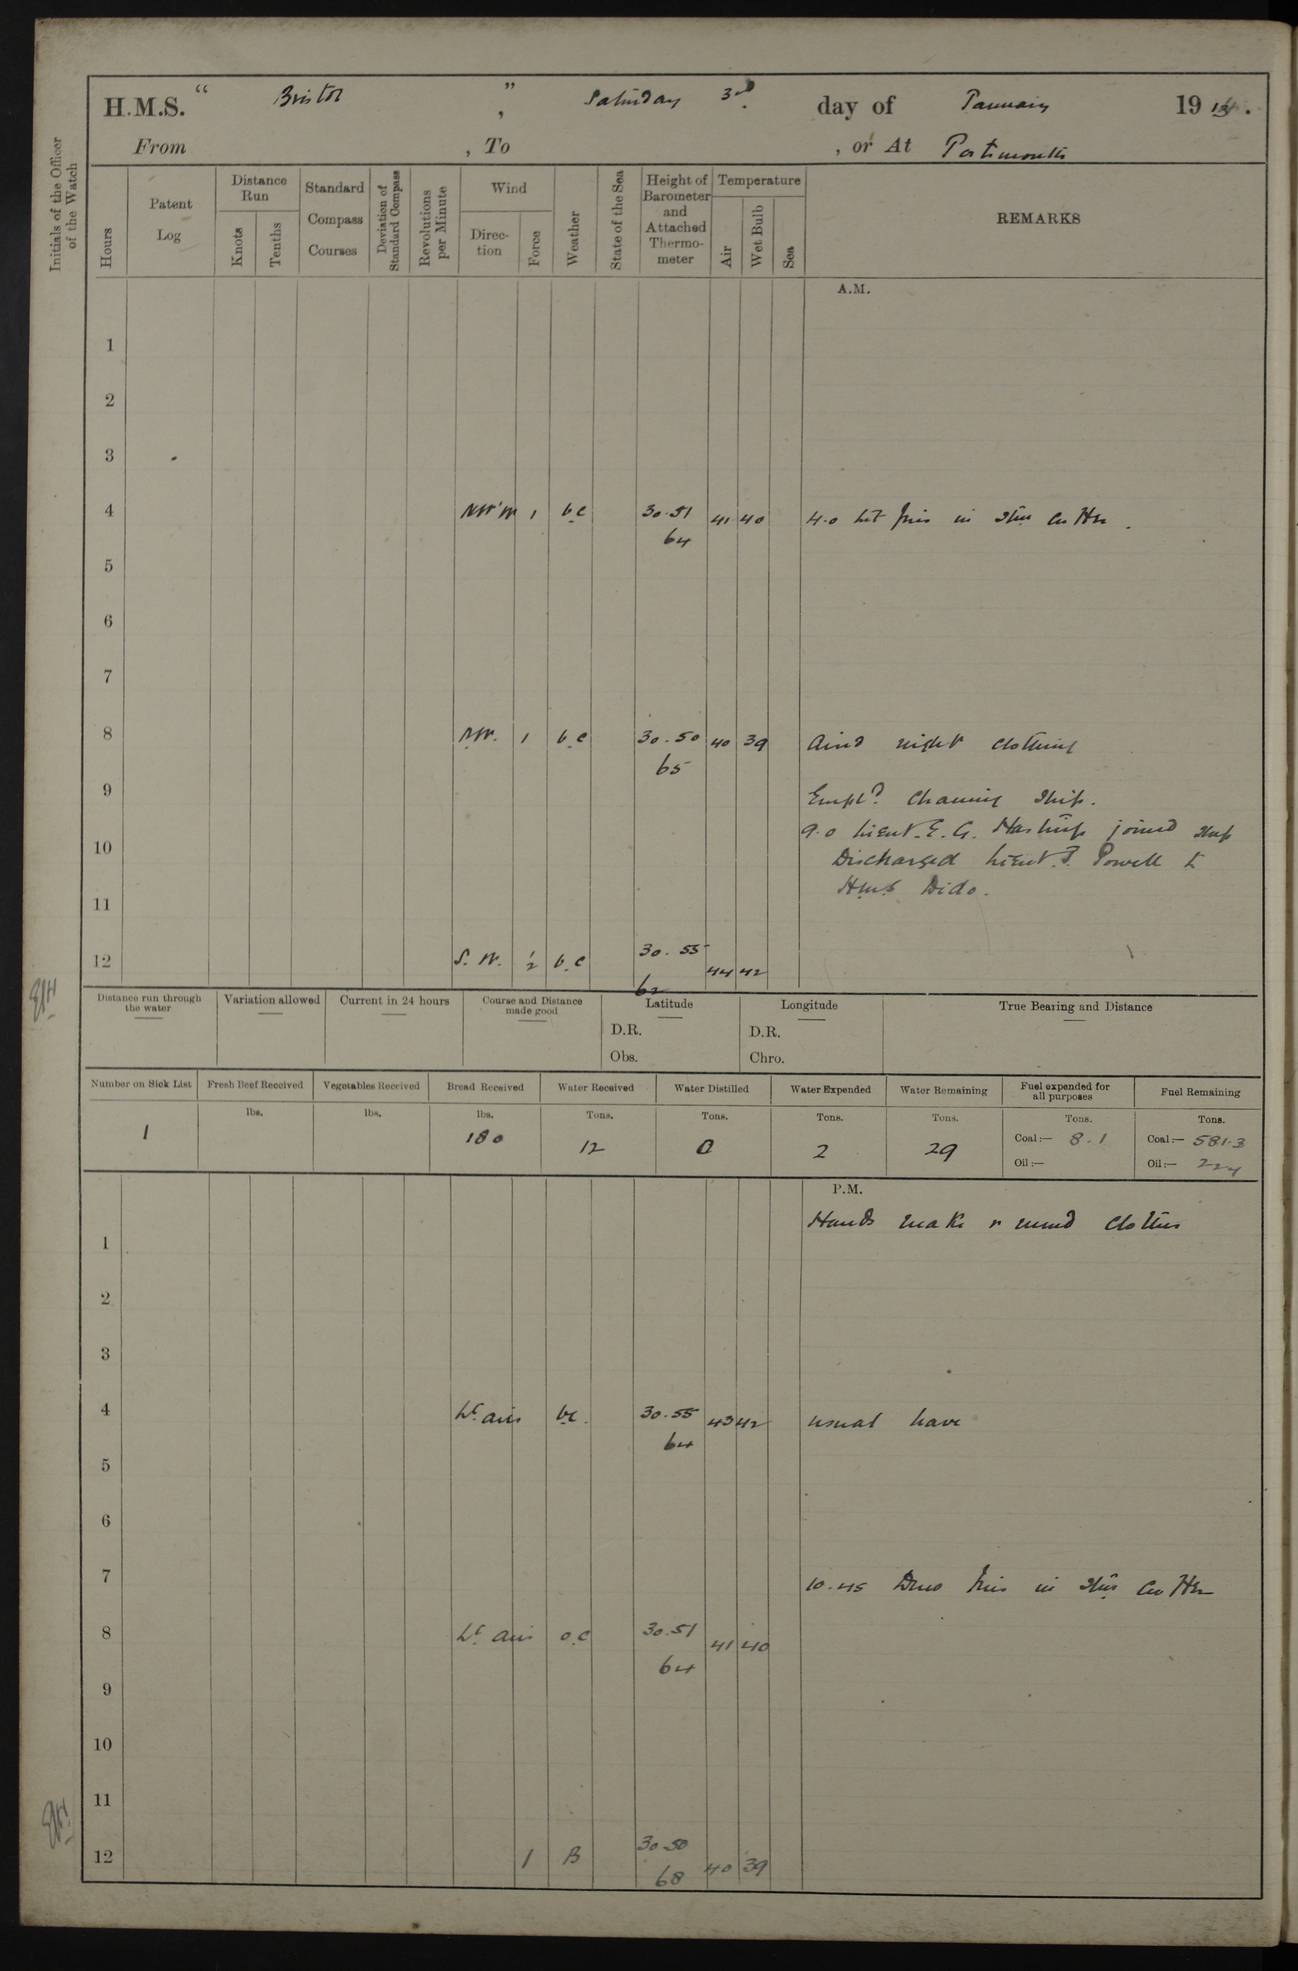 H.M.S. “ Bristol ”, Saturday 3rd day of January 1914.
From , To , or At Portsmouth
Initials of the Officer of the Watch
Hours Patent Log Distance Run Knots Tenths Standard Compass Courses Deviation of Standard Compass Revolutions per Minute Wind Direc-tion Force Weather State of the Sea Height of Barometer and Attached Thermo-meter Temperature Air Wet Bulb Sea REMARKS
A.M.
1
2
3
4 NW'W 1 b.c 30.51 41 40 4.0 Lit fires in Str cutter.
64
5
6
7
8 NW. 1 b.c 30.50 40 39 Aired night clothing
65
9 Empld. Cleaning Ship.
9.0 Lieut. E. G. Hastings joined Ship
10 Discharged Lieut. P. Powell to
HMS Dido.
11
12 S.W. ½ b.c 30.55 44 42
62
EGH
Distance run through the water Variation allowed Current in 24 hours Course and Distance made good Latitude Longitude True Bearing and Distance
D.R. D.R.
Obs. Chro.
Number on Sick List Fresh Beef Received Vegetables Received Bread Received Water Received Water Distilled Water Expended Water Remaining Fuel expended for all purposes Fuel Remaining
lbs. lbs. lbs. Tons. Tons. Tons. Tons. Tons. Tons.
1 180 12 0 2 29 Coal:— 8.1 Coal:— 581.3
Oil:— Oil:— 224
P.M.
Hands make & mend clothes
1
2
3
4 Lt airs b.c. 30.55 43 42 usual leave
64
5
6
7 10.45 Drew fires in Str cutter
8 Lt airs o.c 30.51 41 40
64
9
10
11
12 1 B 30.50 40 39
68
EGH